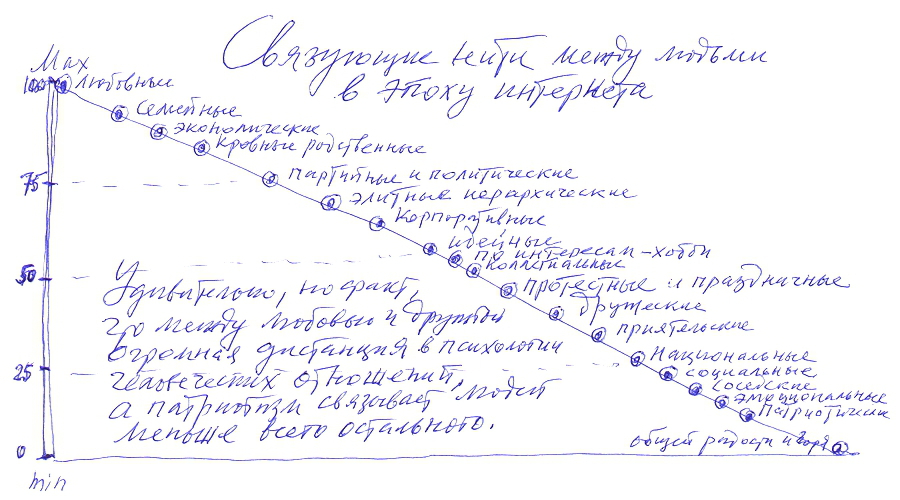 Связующие нити между людьми
в эпоху интернета
Max
100
Любовные
Семейные
экономические
Кровные родственные
75
партийные и политические
элитные иерархические
Корпоративные
идейные
по интересам-хобби
50
Коллегиальные
протестные и праздничные
дружеские
приятельские
Удивительно, но факт,
что между любовью и дружбой
огромная дистанция в психологии
человеческих отношений,
а патриотизм связывает людей
меньше всего остального.
25
Национальные
социальные
соседские
эмоциональные
Патриотические
общей радости и горя
0
min